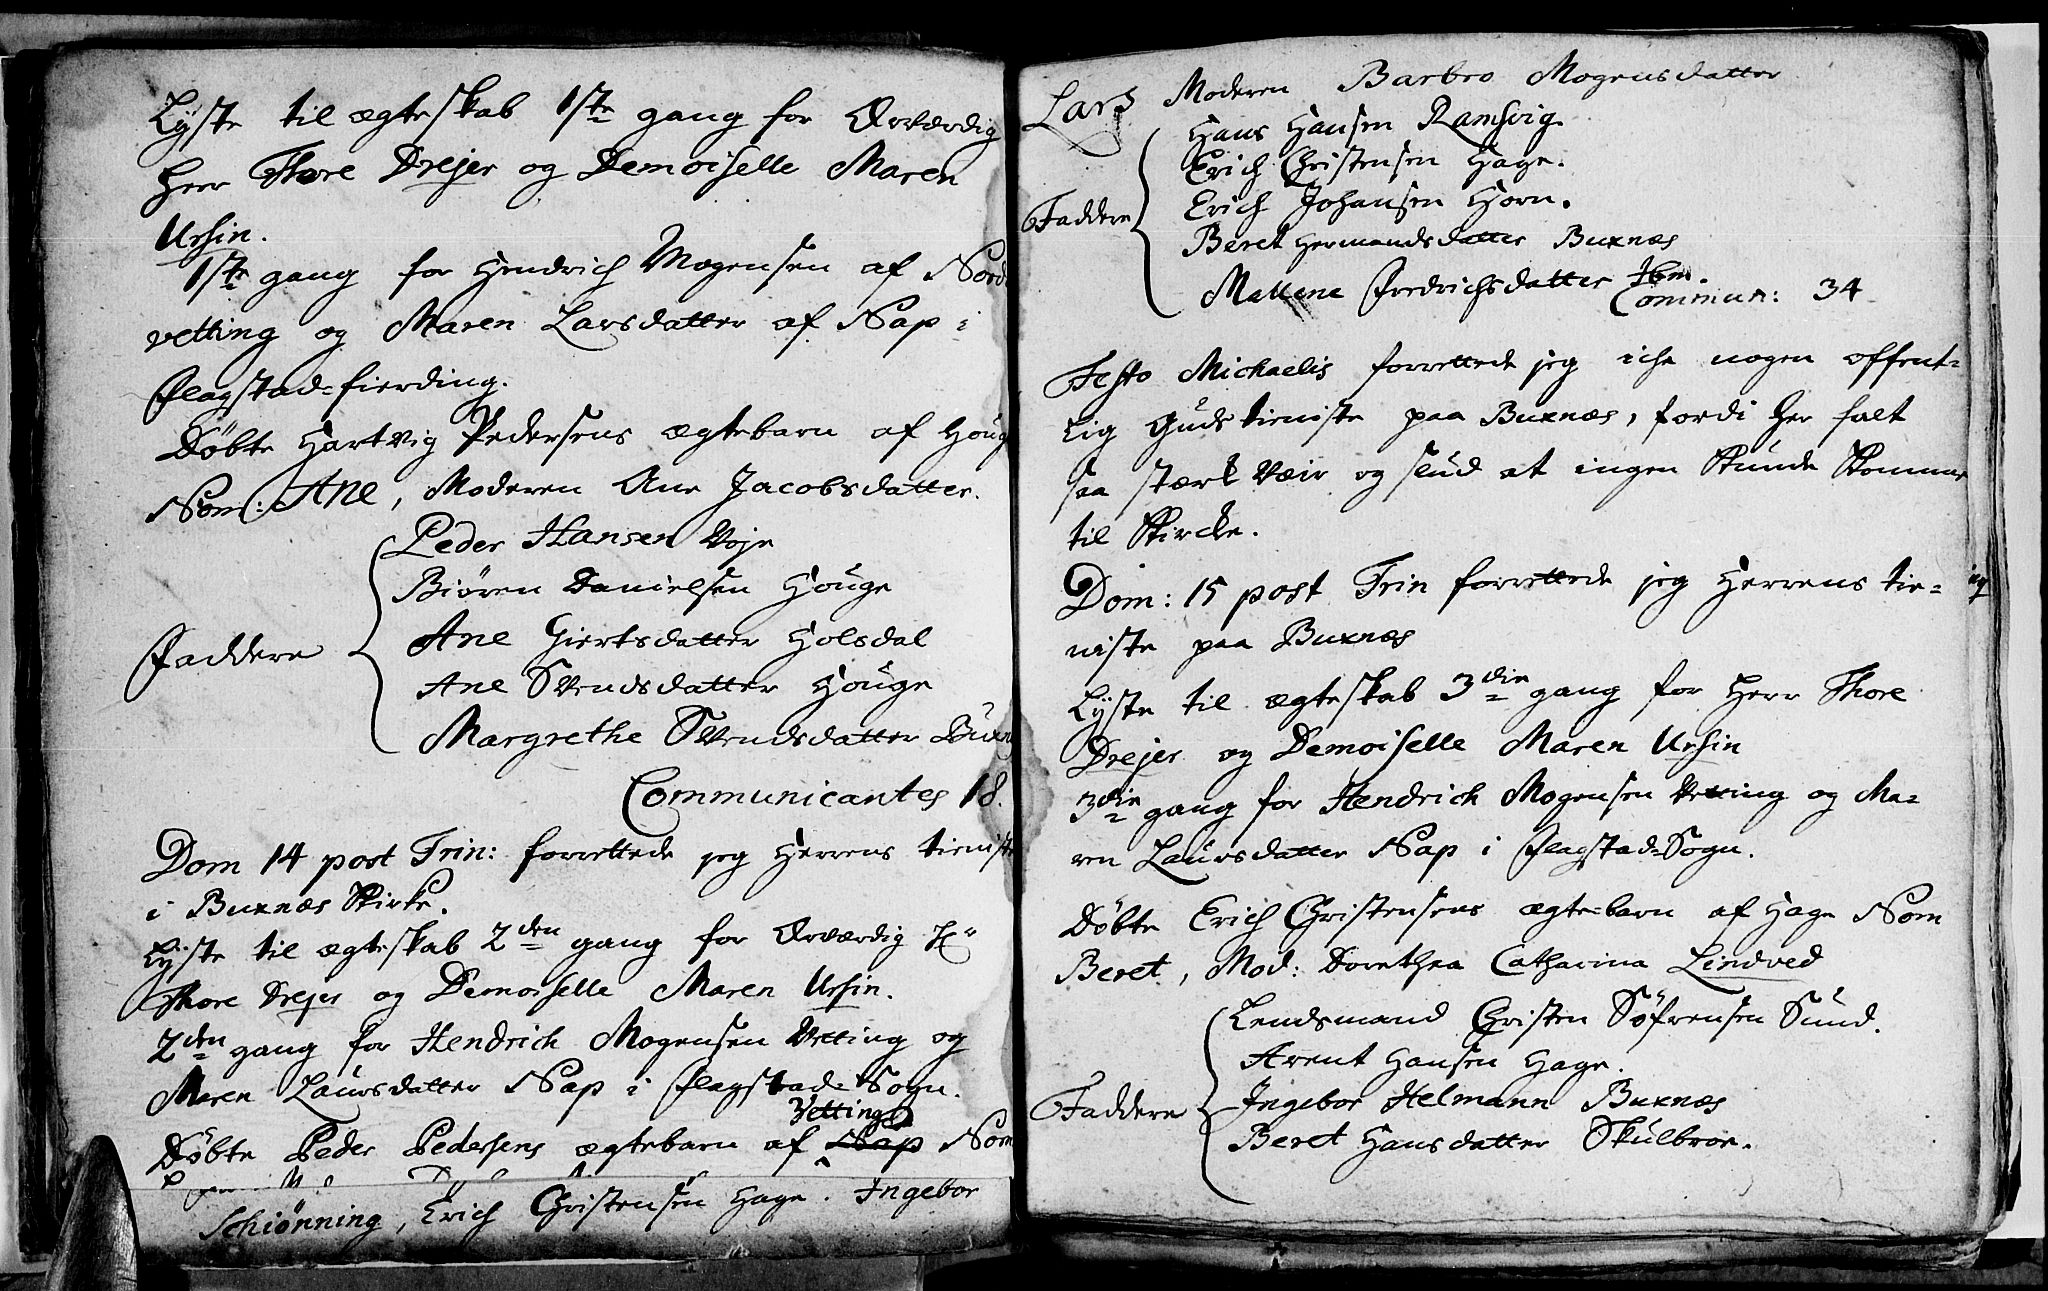 Lyste til ægteskab 1ste gang for Ærværdig
Herr Thore Drejer og Demoiselle Maren
Ursin.
1ste gang for Hendrich Mogensen af Nord
vetting og Maren Larsdatter af Nap i
Flagstad-fierding.
Døbte Hartvig Pedersens ægtebarn af Houg
Nom: Ane, Moderen Ane Jacobsdatter.
Peder Hansen Voje
Biören Danielsen Houge
Ane Giertsdatter Holsdal
Faddere
Ane Svendsdatter Houge
Margrethe Svendsdatter Buxn
Communicantes 18.
Dom 14 post Trin: forrettede jeg Herrens tienist
i Buxnæs Kirke.
Lyste til ægteskab 2den gang for Ærværdig Hr
Thore Drejer og Demoiselle Maren Ursin.
2den gang for Hendrich Mogensen Vetting og
Maren Laursdatter Nap i Flagstad-Sogn.
Vetting
Døbte Peder Pedersens ægtebarn af Nap Nom
Schiønning, Erich Christensen Hage. Ingebor
Lars Moderen Barbro Mogensdatter
Hans Hansen Ramsvig
Erich Christensen Hage.
Faddere
Erich Johansen Horn.
Beret Hermandsdatter Buxnæs
Mallene Fredrichsdatter Ibm.
Commun: 34
Festo Michaelis forrettede jeg iche nogen offent-
lig Gudstieniste paa Buxnæs, fordi her falt
saa stærk Væir og slud at ingen Kunde Komme
til Kircke.
Dom: 15 post Trin forrettede jeg Herrens tie-
niste paa Buxnæs
Lyste til ægteskab 3die gang for Herr Thore
Drejer og Demoiselle Maren Ursin
3die gang for Hendrich Mogensen Vetting og Ma-
ren Laursdatter Nap i Flagstad-Sogn.
Døbte Erich Christensens ægte-barn af Hage Nom
Beret, Mod: Dorethea Catharina Lindved
Lendsmand Christen Söfrensen Sund.
Arent Hansen Hage.
Faddere
Ingebor Helmann Buxnæs
Beret Hansdatter Skulbroe.